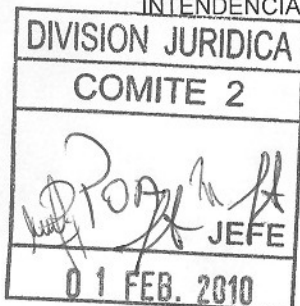 INTENDENCIA
DIVISION JURIDICA
COMITE 2
JEFE
01 FEB. 2010